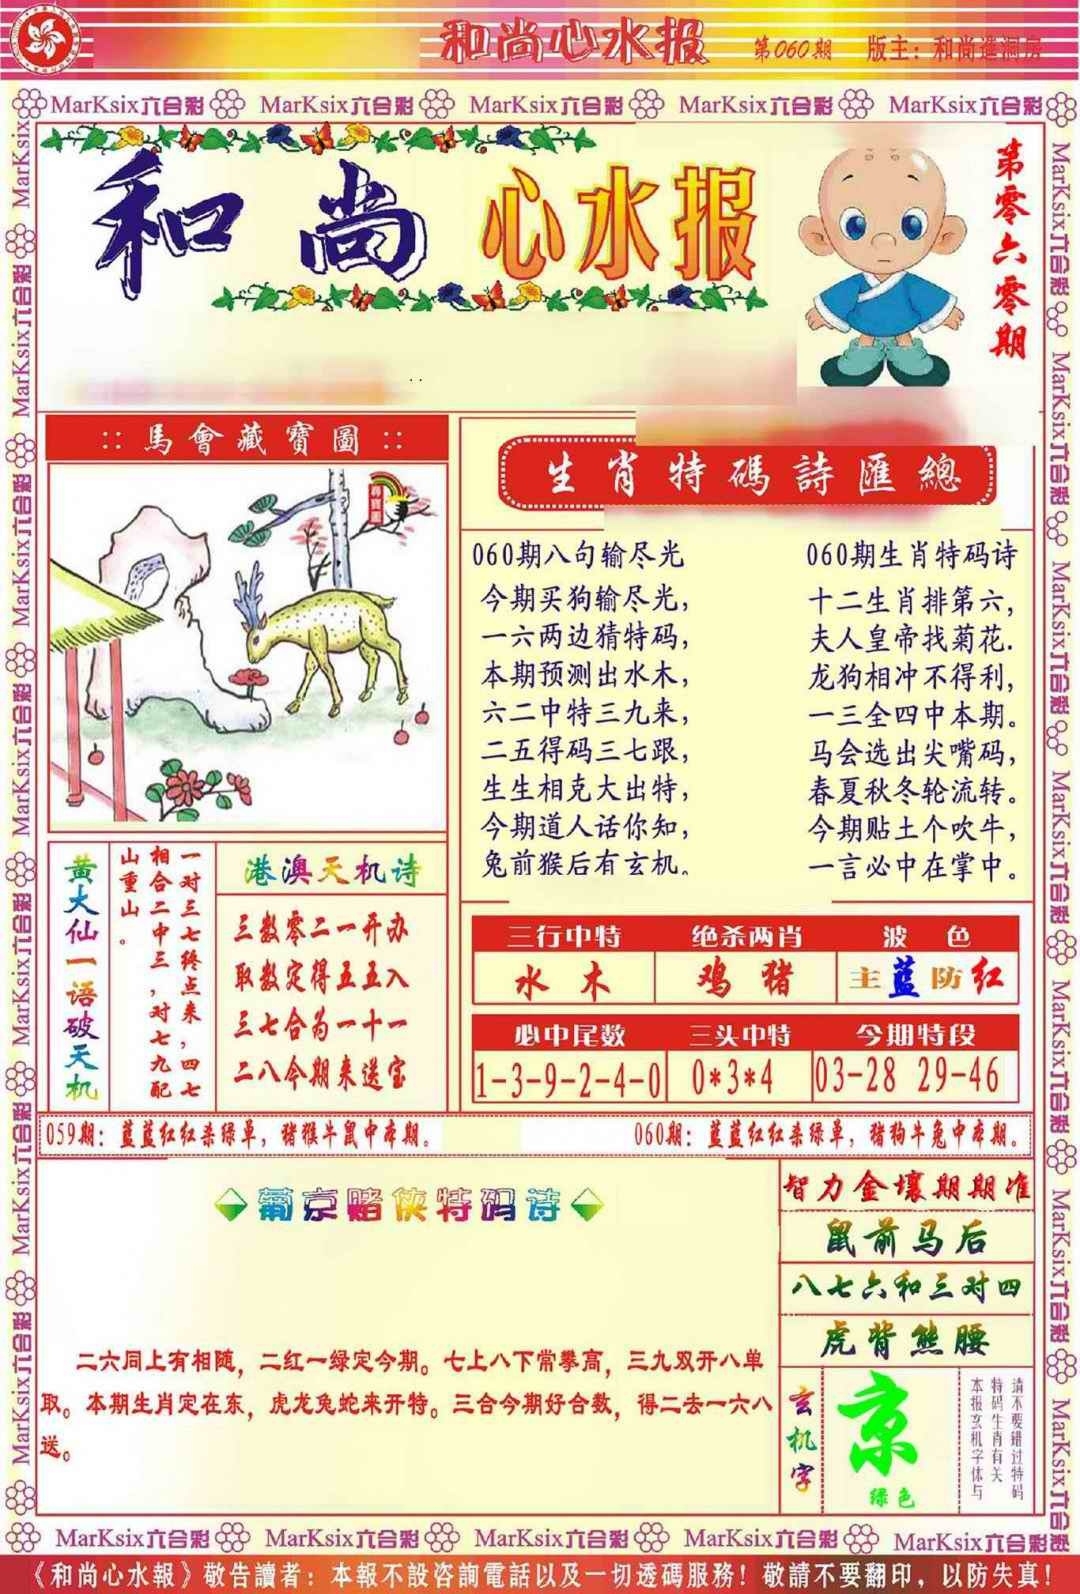 和尚心水报 第060期 版主：和尚進洞房
MarKsix六合彩 MarKsix六合彩 MarKsix六合彩 MarKsix六合彩 MarKsix六合彩
和尚心水报
第零六零期
:: 馬會藏寶圖 ::
尋寶圖
生肖特碼詩匯總
060期八句输尽光
今期买狗输尽光，
一六两边猜特码，
本期预测出水木，
六二中特三九来，
二五得码三七跟，
生生相克大出特，
今期道人话你知，
兔前猴后有玄机。
060期生肖特码诗
十二生肖排第六，
夫人皇帝找菊花.
龙狗相冲不得利，
一三全四中本期。
马会选出尖嘴码，
春夏秋冬轮流转。
今期贴士个吹牛，
一言必中在掌中。
黄大仙一语破天机
一对三七终点来，四七
相合二中三，对七九配
山重山。
港澳天机诗
三数零二一开办
取数定得五五入
三七合为一十一
二八今期来送宝
三行中特 绝杀两肖 波色
水木 鸡猪 主蓝防红
必中尾数 三头中特 今期特段
1-3-9-2-4-0 0*3*4 03-28 29-46
059期：蓝蓝红红杀绿单，猪猴牛鼠中本期。
060期：蓝蓝红红杀绿单，猪狗牛兔中本期。
葡京赌侠特码诗
二六同上有相随，二红一绿定今期。七上八下常攀高，三九双开八单
取。本期生肖定在东，虎龙兔蛇来开特。三合今期好合数，得二去一六八
送。
智力金壤期期准
鼠前马后
八七六和三对四
虎背熊腰
玄机字
京
绿色
请不要错过特码
特码生肖有关
本报玄机字体与
MarKsix六合彩 MarKsix六合彩 MarKsix六合彩 MarKsix六合彩 MarKsix六合彩
《和尚心水報》敬告讀者：本報不設咨詢電話以及一切透碼服務！敬請不要翻印，以防失真！